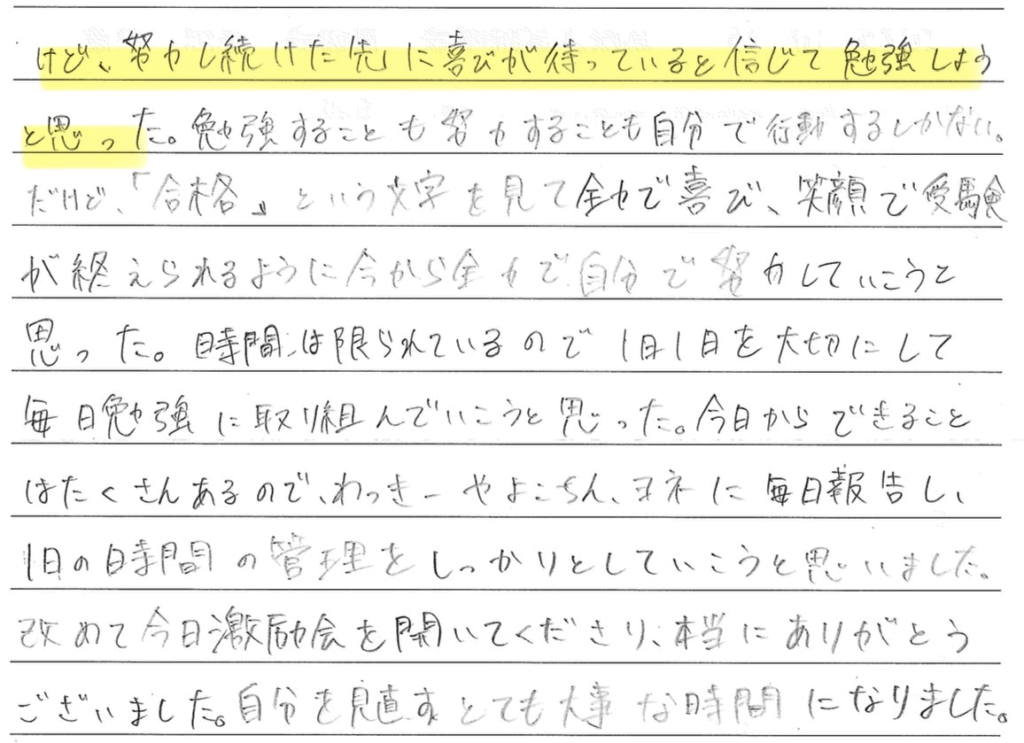 けど、努力し続けた先に喜びが待っていると信じて勉強しよう
と思った。勉強することも努力することも自分で行動するしかない。
だけど、「合格」という文字を見て全力で喜び、笑顔で受験
が終えられるように今から全力で自分で努力していこうと
思った。時間は限られているので1日1日を大切にして
毎日勉強に取り組んでいこうと思った。今日からできること
はたくさんあるので、わっきーやよこちん、ヨネに毎日報告し、
1日の時間の管理をしっかりとしていこうと思いました。
改めて今日激励会を開いてくださり、本当にありがとう
ございました。自分を見直すとても大事な時間になりました。